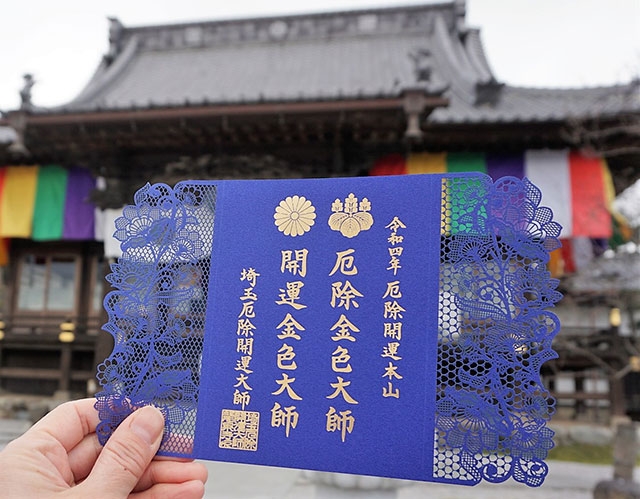 令和四年 厄除開運本山
厄除金色大師
開運金色大師
埼玉厄除開運大師